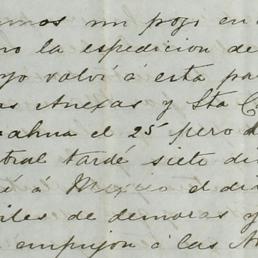 un pozo en
la espedicion de
yo volví á esta pa
as Anexas y Sta C
ahua el 25 pero d
tral tardé siete di
é á Mexico el dia
iles de demoras y
empujon á las A